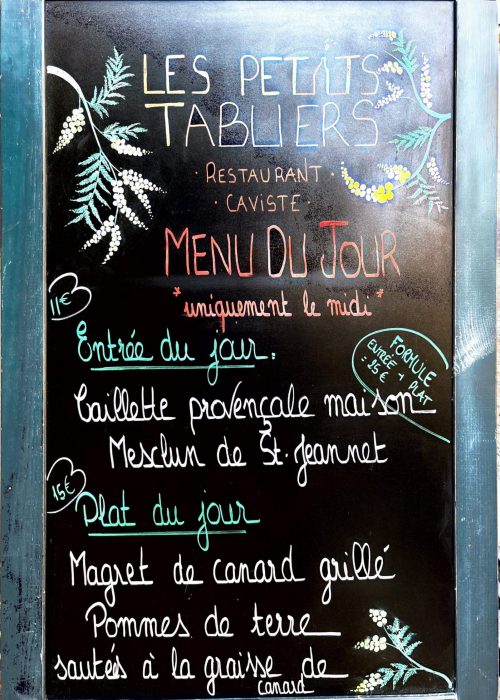 LES PETITS
TABLIERS
· RESTAURANT ·
· CAVISTE ·
MENU DU JOUR
*uniquement le midi*
11€
Entrée du jour.
FORMULE
ENTRÉE + PLAT
: 25€
Caillette provençale maison
Mesclun de St-Jeannet
15€
Plat du jour
Magret de canard grillé
Pommes de terre
sautées à la graisse de
canard